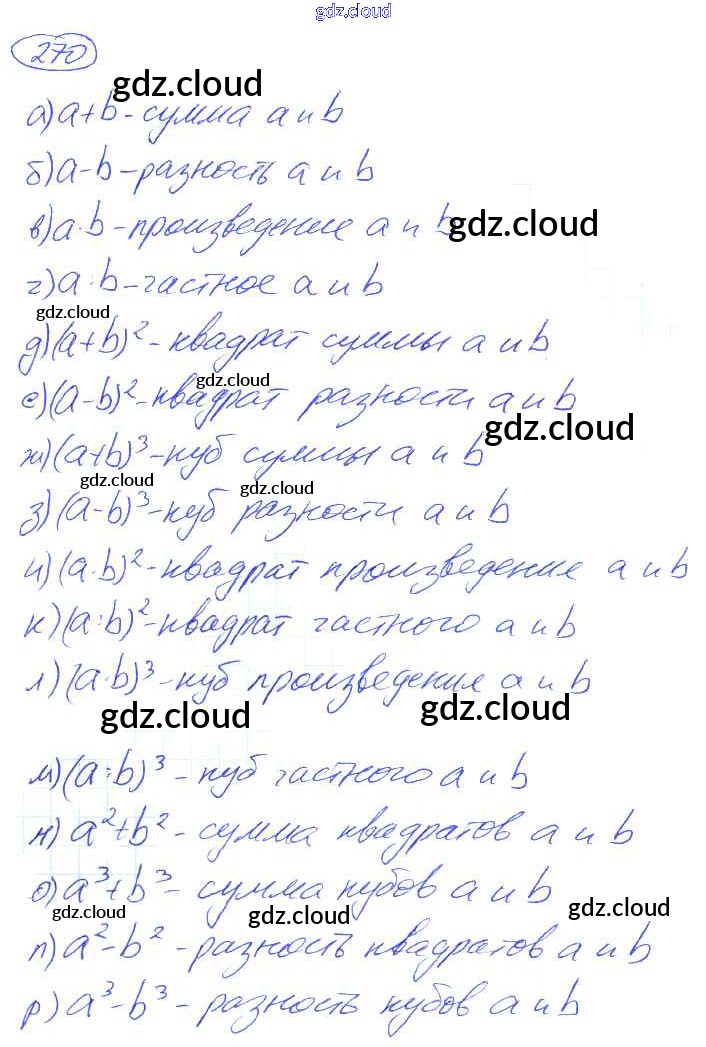 gdz.cloud
270
gdz.cloud
а) a+b - сумма a и b
б) a-b - разность a и b
в) a·b - произведение a и b
gdz.cloud
г) a:b - частное a и b
gdz.cloud
д) (a+b)² - квадрат суммы a и b
gdz.cloud
е) (a-b)² - квадрат разности a и b
gdz.cloud
ж) (a+b)³ - куб суммы a и b
gdz.cloud gdz.cloud
з) (a-b)³ - куб разности a и b
и) (a·b)² - квадрат произведение a и b
к) (a:b)² - квадрат частного a и b
л) (a·b)³ - куб произведения a и b
gdz.cloud gdz.cloud
м) (a:b)³ - куб частного a и b
н) a²+b² - сумма квадратов a и b
о) a³+b³ - сумма кубов a и b
gdz.cloud gdz.cloud gdz.cloud
п) a²-b² - разность квадратов a и b
р) a³-b³ - разность кубов a и b